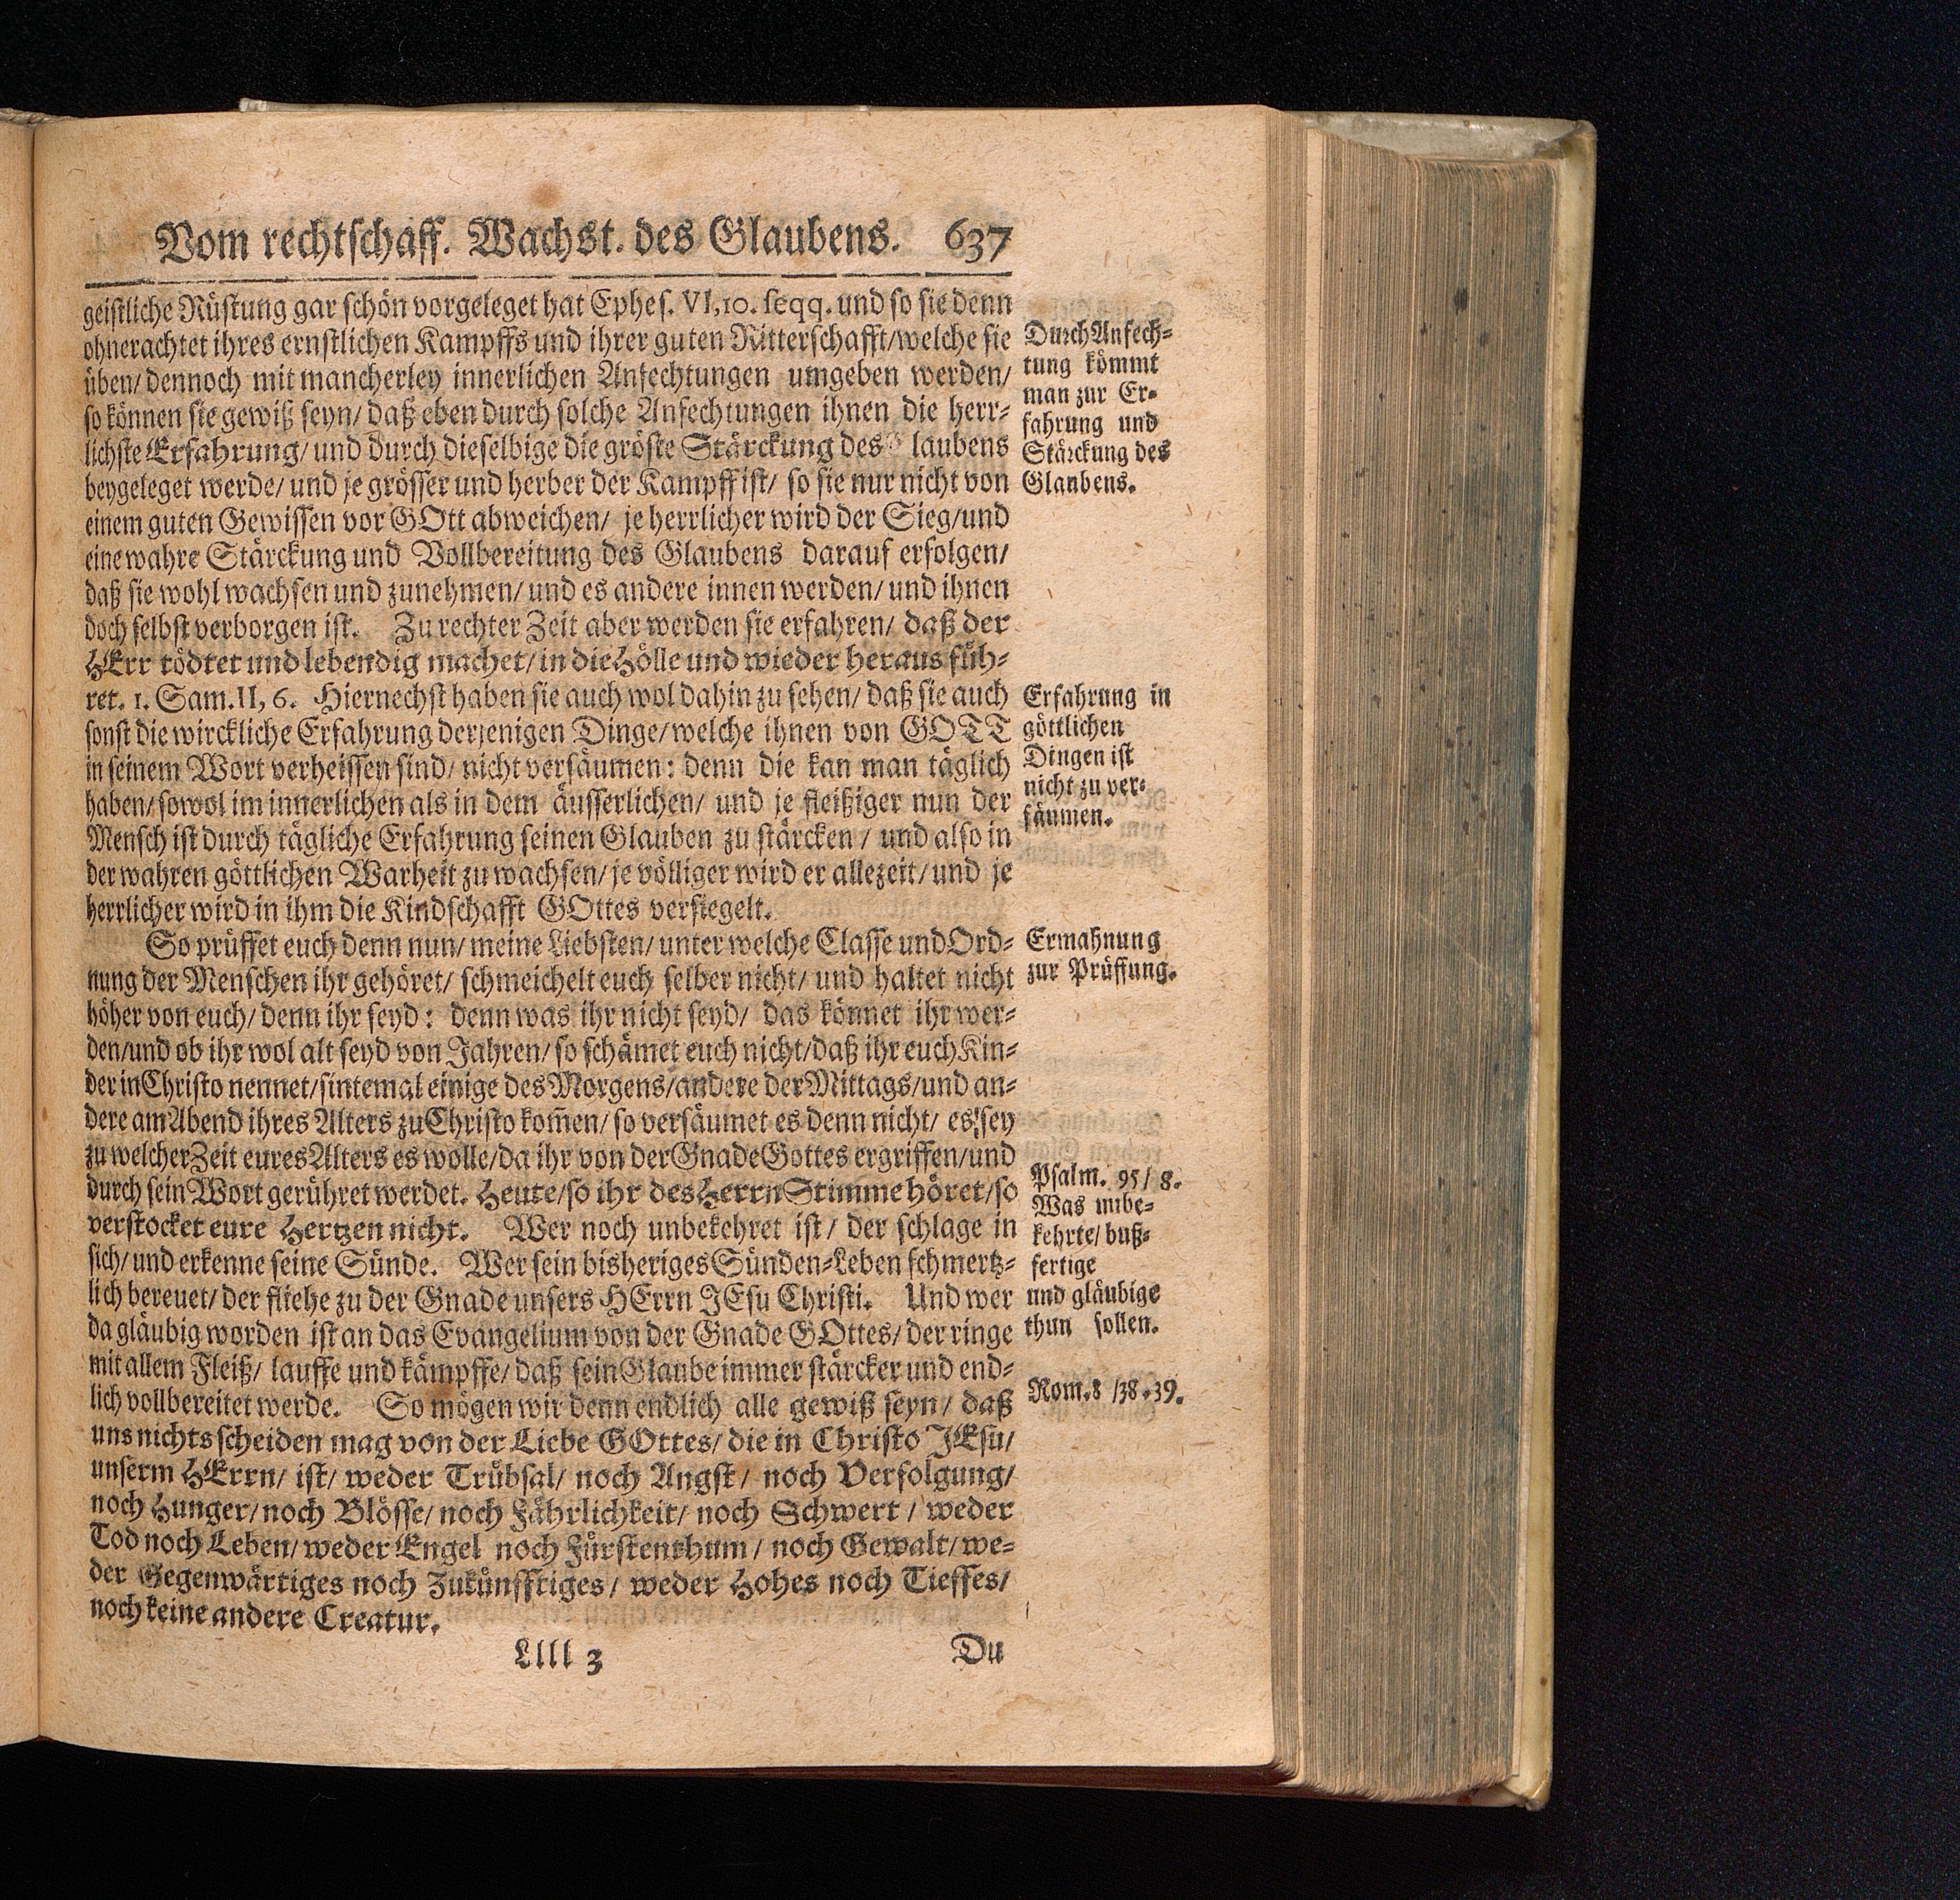 Vom rechtschaff. Wachst. des Glaubens. 637
geistliche Rüstung gar schön vorgeleget hat Ephes. VI, 10. seqq. und so sie denn
ohnerachtet ihres ernstlichen Kampffs und ihrer guten Ritterschafft/welche sie
üben/ dennoch mit mancherley innerlichen Anfechtungen umgeben werden/
so können sie gewiß seyn/ daß eben durch solche Anfechtungen ihnen die herr-
lichste Erfahrung/ und durch dieselbige die gröste Stärckung des laubens
beygeleget werde/ und je grösser und herber der Kampff ist/ so sie nur nicht von
einem guten Gewissen vor GOtt abweichen/ je herrlicher wird der Sieg/und
eine wahre Stärckung und Vollbereitung des Glaubens darauf erfolgen/
daß sie wohl wachsen und zunehmen/ und es andere innen werden/ und ihnen
doch selbst verborgen ist. Zu rechter Zeit aber werden sie erfahren/ daß der
HErr tödtet und lebendig machet/ in die Hölle und wieder heraus füh-
ret. 1. Sam. II, 6. Hiernechst haben sie auch wol dahin zu sehen/ daß sie auch
sonst die wirckliche Erfahrung derjenigen Dinge/ welche ihnen von GOTT
in seinem Wort verheissen sind/ nicht versäumen: denn die kan man täglich
haben/ sowol im innerlichen als in dem äusserlichen/ und je fleißiger nun der
Mensch ist durch tägliche Erfahrung seinen Glauben zu stärcken / und also in
der wahren göttlichen Warheit zu wachsen/ je völliger wird er allezeit/ und je
herrlicher wird in ihm die Kindschafft GOttes versiegelt.
So prüffet euch denn nun/ meine Liebsten/ unter welche Classe und Ord-
nung der Menschen ihr gehöret/ schmeichelt euch selber nicht/ und haltet nicht
höher von euch/ denn ihr seyd: denn was ihr nicht seyd/ das könnet ihr wer-
den/und ob ihr wol alt seyd von Jahren/ so schämet euch nicht/daß ihr euch Kin-
der in Christo nennet/sintemal einige des Morgens/andere der Mittags/und an-
dere am Abend ihres Alters zu Christo kom̃en/ so versäumet es denn nicht/ es sey
zu welcher Zeit eures Alters es wolle/da ihr von der Gnade Gottes ergriffen/und
durch sein Wort gerühret werdet. Heute/so ihr des Herrn Stimme höret/so
verstocket eure Hertzen nicht. Wer noch unbekehret ist/ der schlage in
sich/ und erkenne seine Sünde. Wer sein bisheriges Sünden-Leben schmertz-
lich bereuet/ der fliehe zu der Gnade unsers HErrn JEsu Christi. Und wer
da gläubig worden ist an das Evangelium von der Gnade GOttes/ der ringe
mit allem Fleiß/ lauffe und kämpffe/ daß sein Glaube immer stärcker und end-
lich vollbereitet werde. So mögen wir denn endlich alle gewiß seyn/ daß
uns nichts scheiden mag von der Liebe GOttes/ die in Christo JEsu/
unserm HErrn/ ist/ weder Trübsal/ noch Angst/ noch Verfolgung/
noch Hunger/ noch Blösse/ noch Fährlichkeit/ noch Schwert / weder
Tod noch Leben/ weder Engel noch Fürstenthum / noch Gewalt/ we-
der Gegenwärtiges noch Zukünfftiges / weder Hohes noch Tieffes/
noch keine andere Creatur.
Llll 3 Du
Durch Anfech-
tung kömmt
man zur Er-
fahrung und
Stärckung des
Glaubens.
Erfahrung in
göttlichen
Dingen ist
nicht zu ver-
säumen.
Ermahnung
zur Prüffung.
Psalm. 95/ 8.
Was unbe-
kehrte/ buß-
fertige
und gläubige
thun sollen.
Rom. 8 /38. 39.